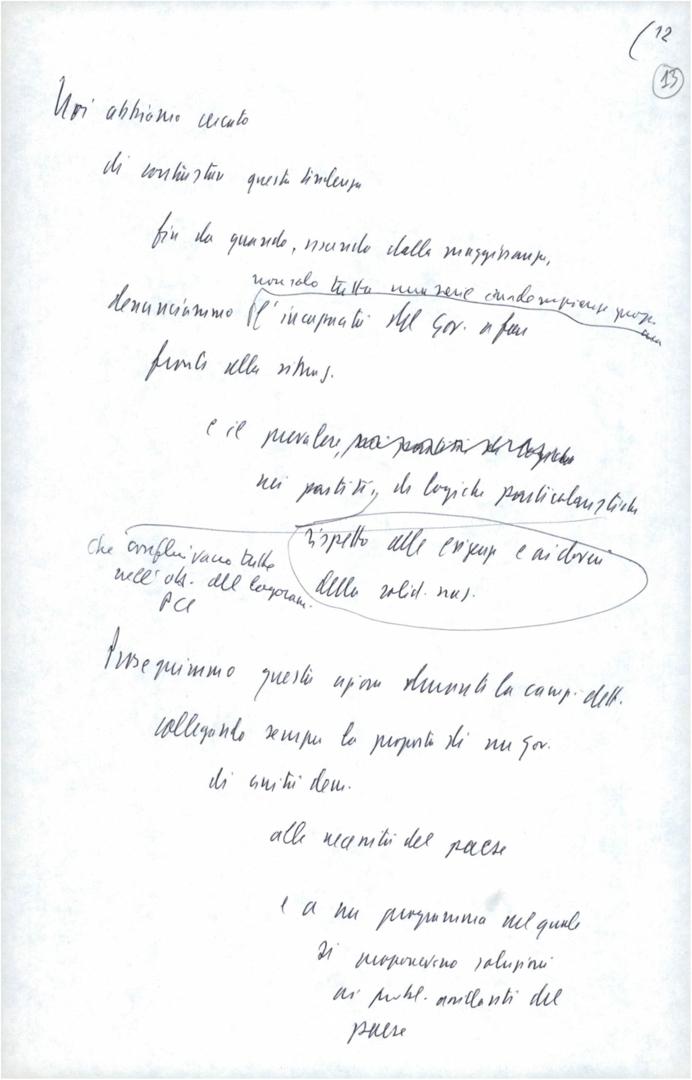 (12
13
Noi abbiamo cercato
di contrastare questa tendenza
fin da quando, uscendo dalla maggioranza,
non solo tutta una serie inadempienze progr.
denunciammo l'incapacità del Gov. a far
fronte alla situaz.
e il prevalere,
nei partiti, di logiche particolaristiche
rispetto alle esigenze e ai doveri
della solid. naz.
che confluivano tutte
nell'ob. del logoram.
PCI
Proseguimmo questa azione durante la camp. elett.
collegando sempre la proposta di un Gov.
di unità dem.
alle necessità del paese
e a un programma nel quale
si proponevano soluzioni
ai probl. assillanti del
paese